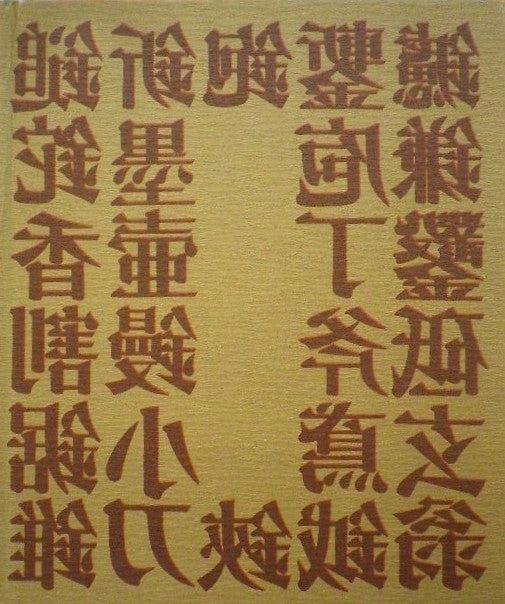 鎚鉈香割鋸錐
釿墨壺鏝小刀
鉋鋏
鏨庖丁斧鳶鉞
鑢鎌鑿砥玄翁